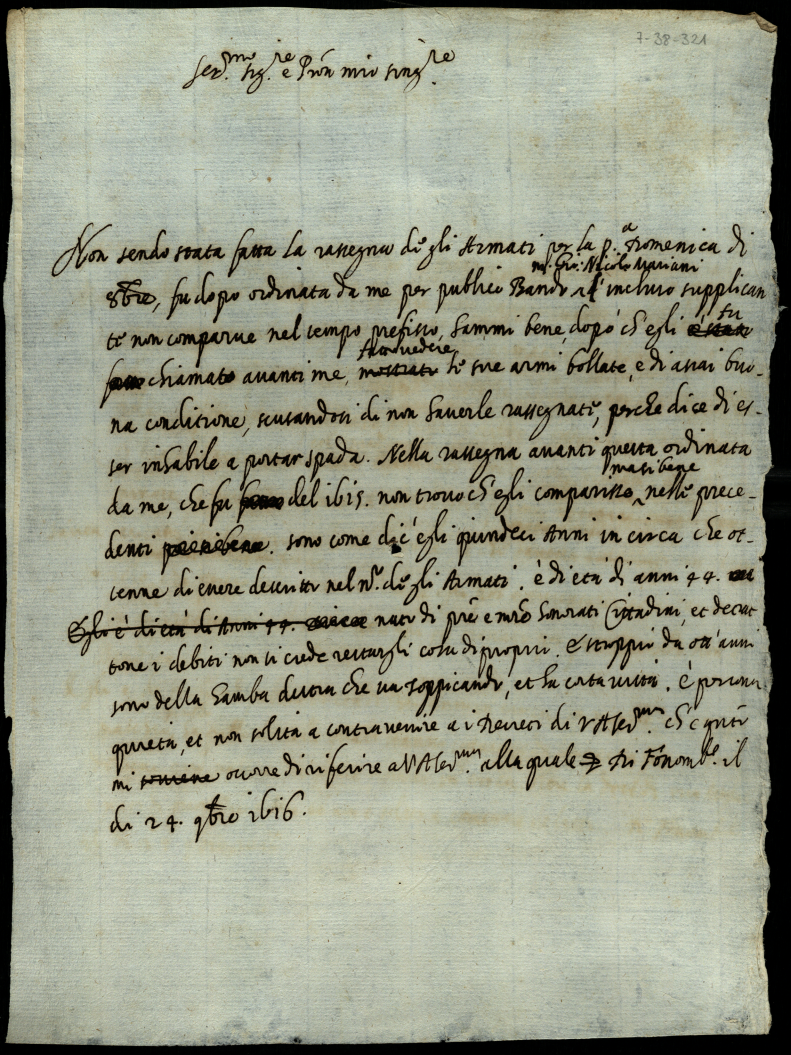 7-38-321
Ser.mo sig.re e Prōn mio sing.re
Non sendo stata fatta la rassegna de gli Armati per la p.a Domenica di
8bre, fu dopo ordinata da me per publico Bando et l'incluso supplican
m. Gio: Nicolo Mariani
te non comparue nel tempo prefisso, hammi bene, dopò ch'egli è stato fu
fatto chiamato auanti me, mostrato fatto uedere le sue armi bollate, e di assai buo-
na conditione, scusandosi di non hauerle rassegnate, perche dice di es-
ser inhabile a portar spada. Nella rassegna auanti questa ordinata
da me, che fu del 1615. non trouo ch'egli comparisse, ma si bene nelle prece-
denti . sono come dic'egli quindeci Anni in circa che ot-
tenne di essere descritto nel n.o de gli Armati. è di età di anni 44.
Egli è di età di Anni 44. nato di prē e mrē honorati Cittadini, et detrat
tone i debiti non si crede restargli cosa di proprio. È stroppio da ott'anni
sono della gamba destra che ua zoppicando, et ha corta uista. è persona
quieta, et non solita a contrauenire a i Decreti di V A Ser.ma ch'è qnto
mi ocorre di riferire a V A Ser.ma alla quale Di Fōnomb.e il
di 24. 9bre 1616.